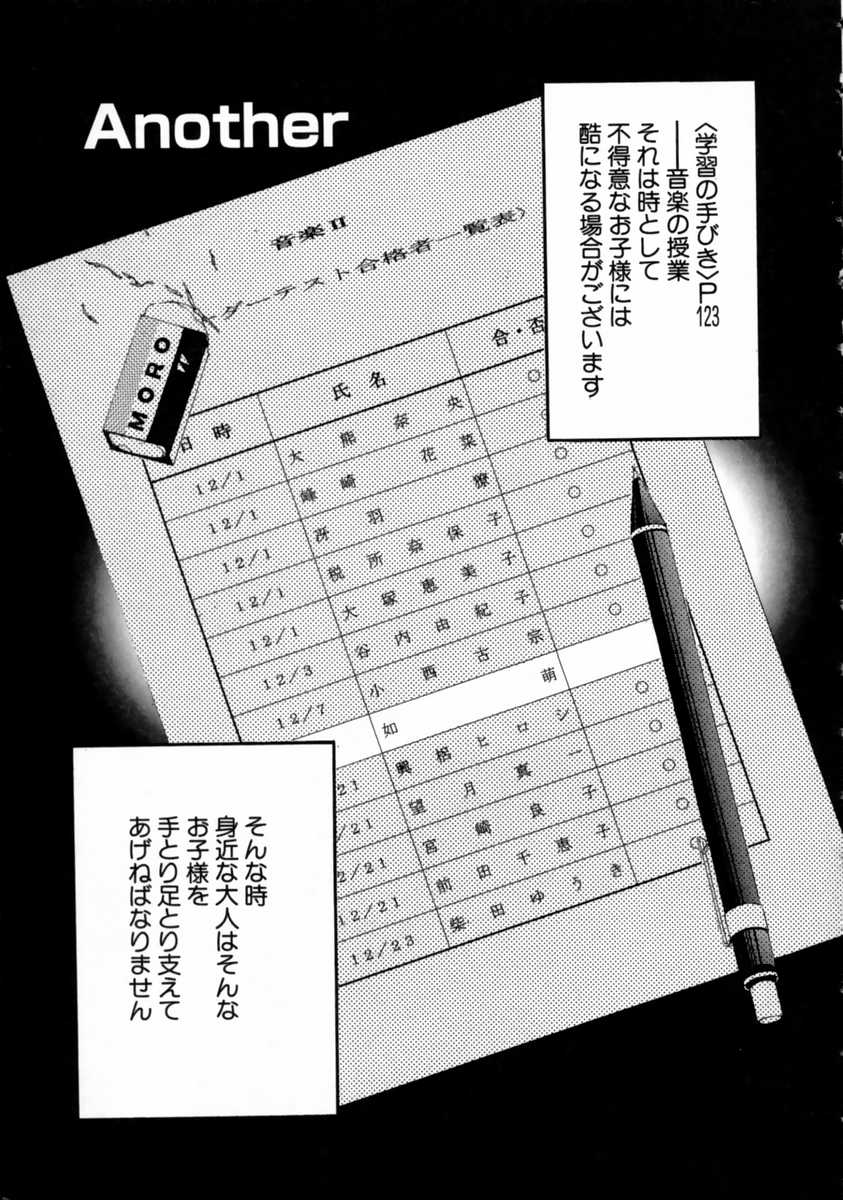 Another
〈学習の手びき〉P123
──音楽の授業
それは時として
不得意なお子様には
酷になる場合がございます
音楽Ⅱ
ーダーテスト合格者一覧表〉
MORO
日時 氏名 合・否
12/1 大熊奈央 ○
12/1 峰崎花菜 ○
12/1 冴羽獠 ○
12/1 税所奈保子 ○
12/1 大塚恵美子 ○
12/3 谷内由紀子 ○
12/7 小西古宗 ○
如萌
21 奥格ヒロシ ○
/21 望月真一 ○
/21 宮崎良子 ○
12/21 前田千恵子 ○
12/23 柴田ゆうき
そんな時
身近な大人はそんな
お子様を
手とり足とり支えて
あげねばなりません